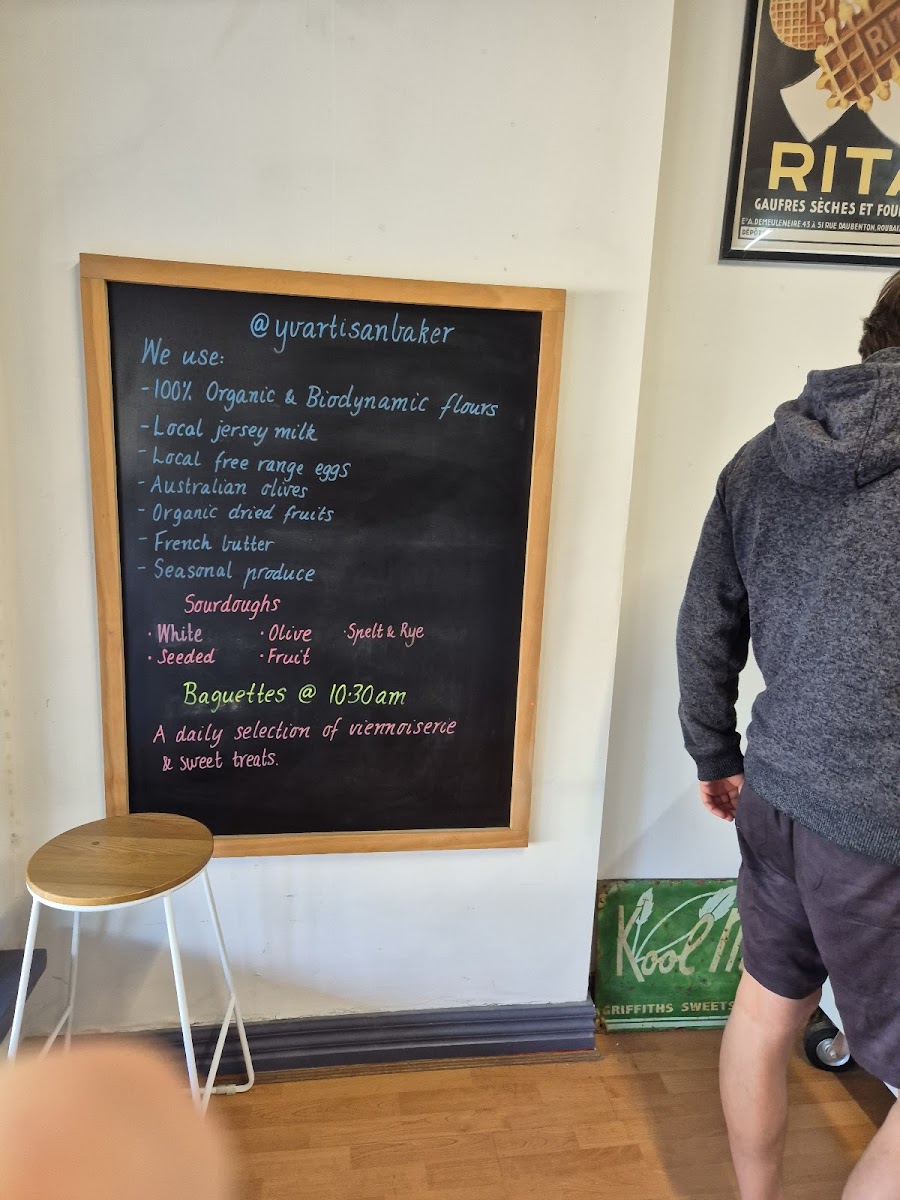 @yvartisanbaker
We use:
-100% Organic & Biodynamic flours
-Local jersey milk
-Local free range eggs
-Australian olives
-Organic dried fruits
-French butter
-Seasonal produce
Sourdoughs
·White ·Olive ·Spelt & Rye
·Seeded ·Fruit
Baguettes @ 10:30am
A daily selection of viennoiserie
& sweet treats.
RITA
GAUFRES SÈCHES ET
Ets A. DEMEULENEIRE 43 À 51 RUE DAUBENTON, ROUBAI
DÉPÔT
Kool M
GRIFFITHS SWEETS